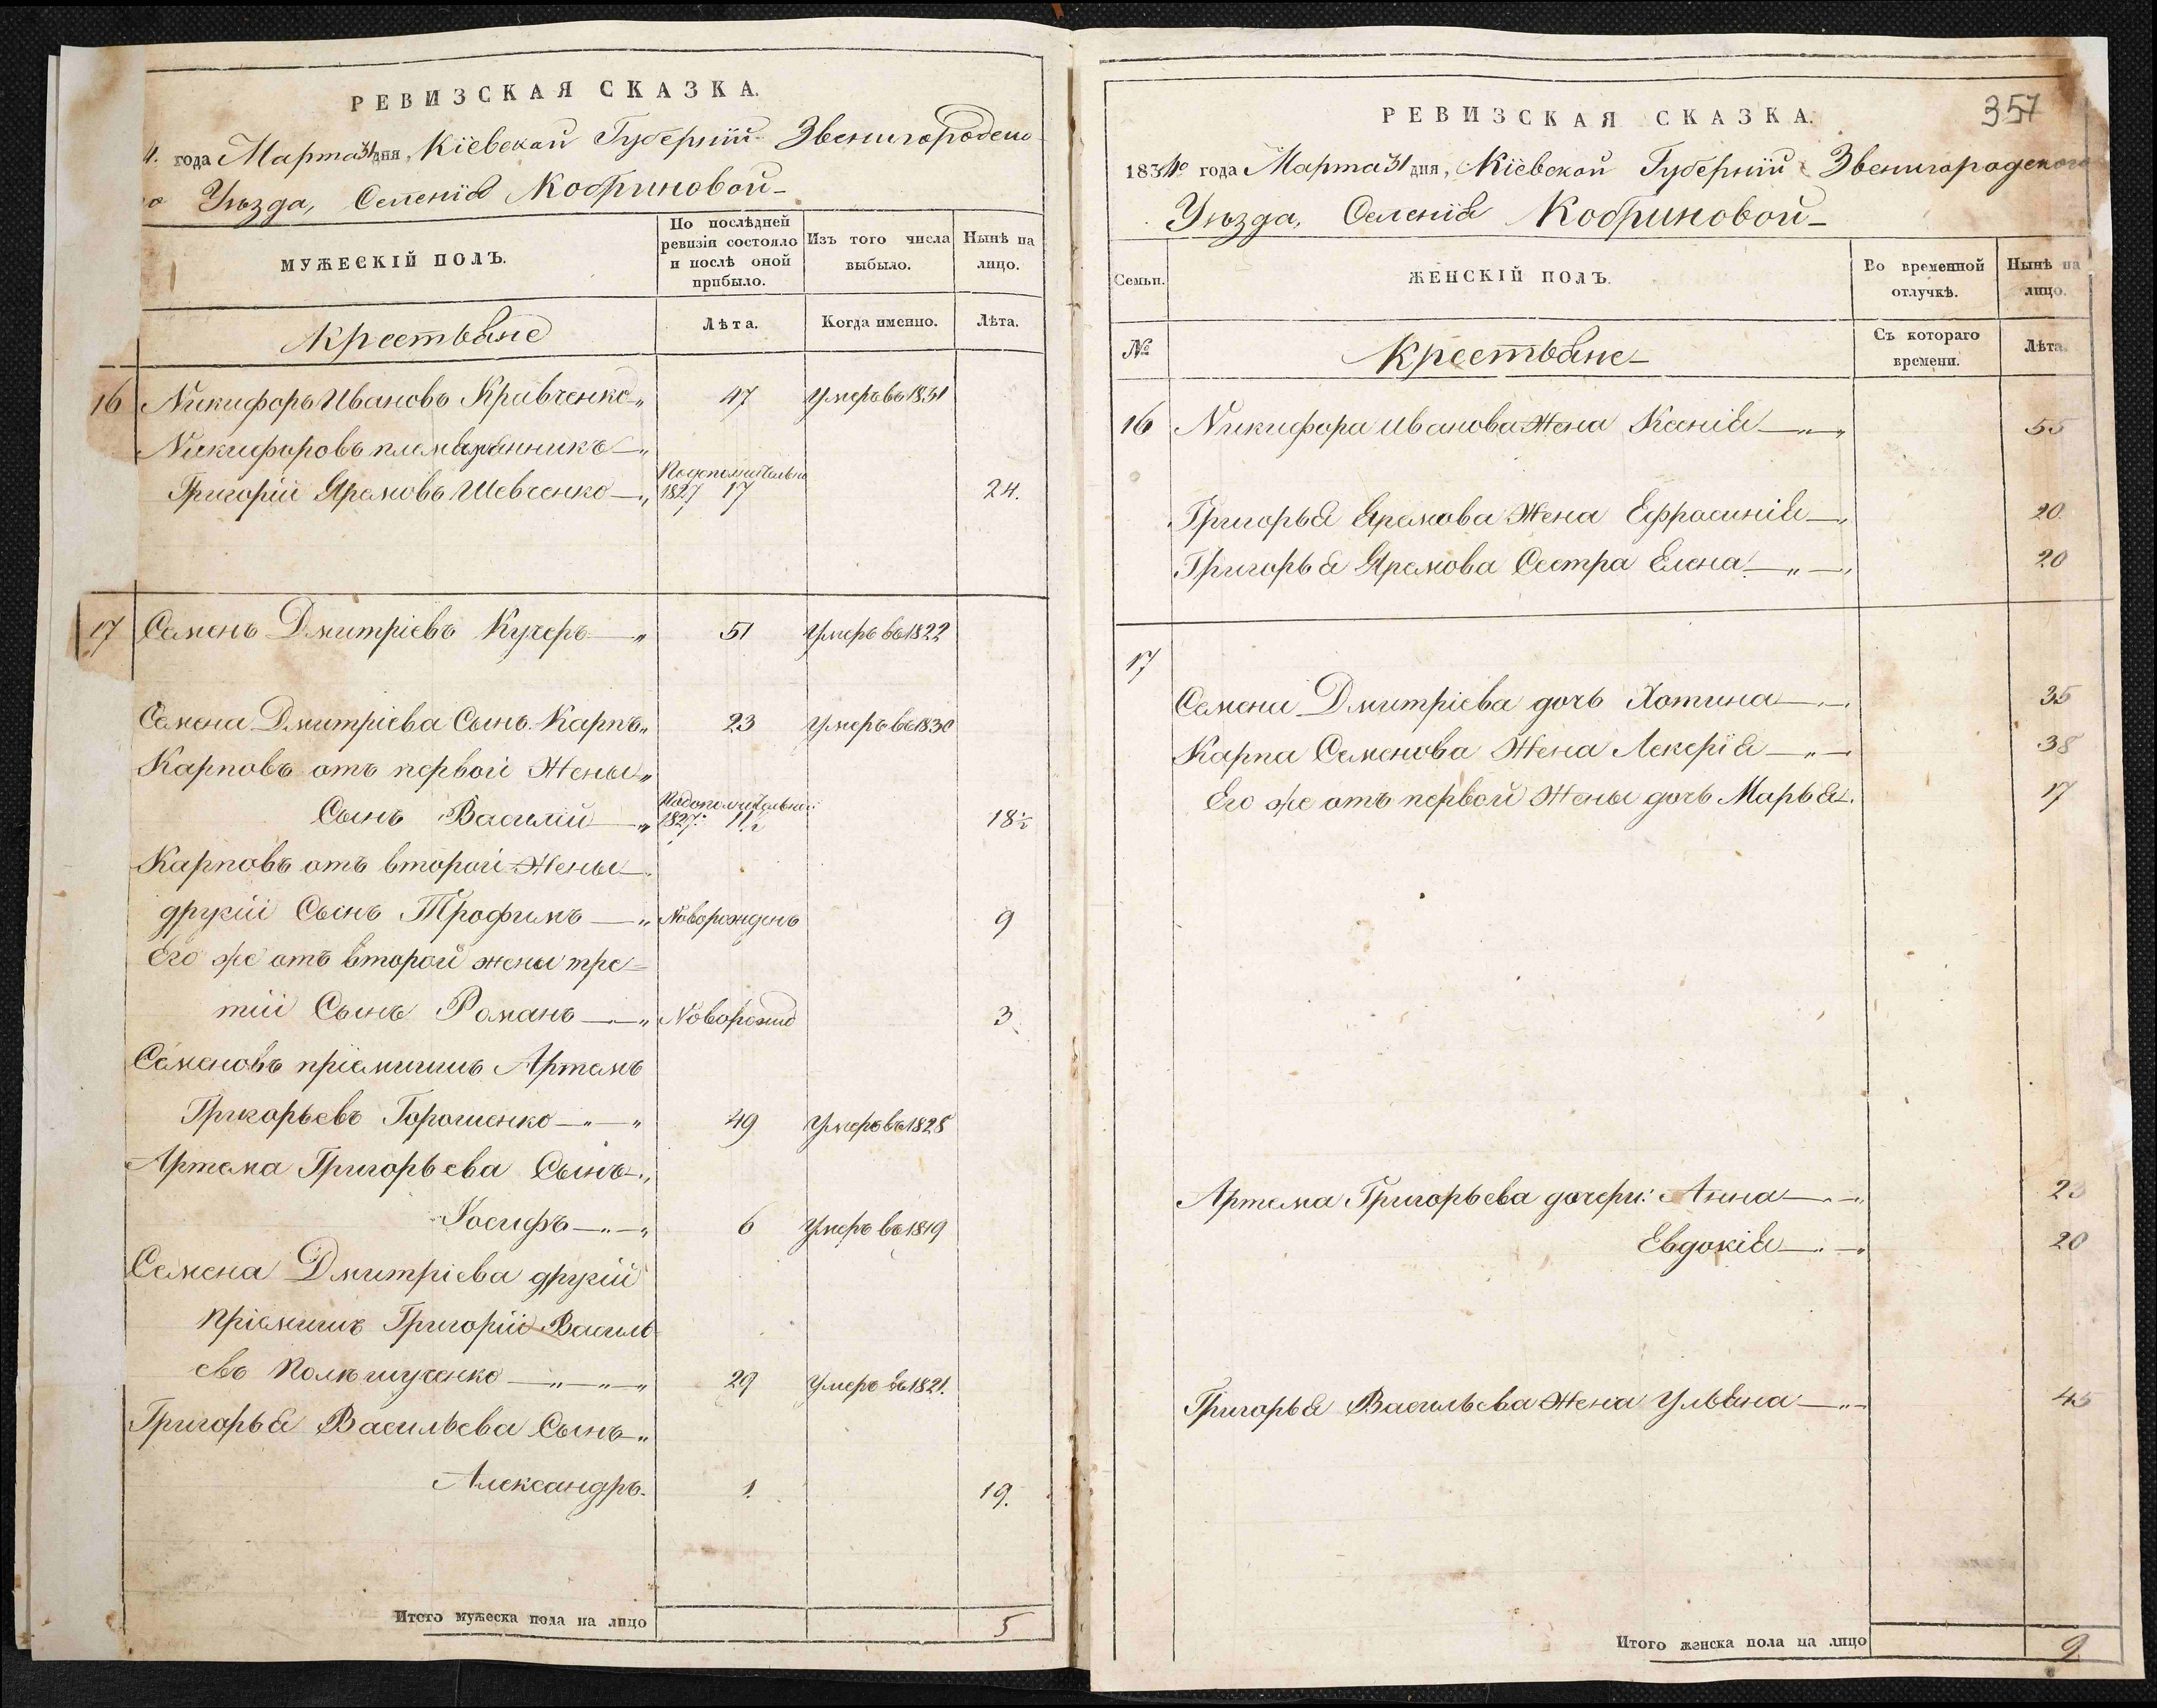 РЕВИЗСКАЯ СКАЗКА.
4. года Марта 31 дня, Кіевской Губерніи Звенигородско
о Уѣзда, Селенія Кобриновой
МУЖЕСКІЙ ПОЛЪ.
По послѣдней ревизіи состояло и послѣ оной прибыло.
Изъ того числа выбыло.
Нынѣ на лицо.
Крестьяне
Лѣта.
Когда именно.
Лѣта.
16 Никифоръ Ивановъ Кравченко 47 Умеръ въ 1831
Никифоровъ племянникъ
Григорій Яремовъ Шевченко 1827 17 24.
17 Семенъ Дмитріевъ Кучеръ 51 Умеръ въ 1822
Семена Дмитріева Сынъ Карпъ 23 Умеръ въ 1830
Карповъ отъ первой Жены
Сынъ Василій 1827: 11½ 18½
Карповъ отъ второй Жены
другій Сынъ Трофимъ Новорожденъ 9
Его же отъ второй жены тре=
тій Сынъ Романъ Новорожд 3
Семеновъ пріемышъ Артемъ
Григорьевъ Горошенко 49 Умеръ въ 1828
Артема Григорьева Сынъ
Іосифъ 6 Умеръ въ 1819
Семена Дмитріева другій
пріемышъ Григорій Василь
евъ Полѣшученко 29 Умеръ въ 1821.
Григорья Васильева Сынъ
Александръ. 1. 19.
Итого мужеска пола на лицо 5
357
РЕВИЗСКАЯ СКАЗКА.
1834го года Марта 31 дня, Кіевской Губерніи Звенигородского
Уѣзда, Селенія Кобриновой
Семьи.
ЖЕНСКІЙ ПОЛЪ.
Во временной отлучкѣ.
Нынѣ на лицо.
№
Крестьяне
Съ котораго времени.
Лѣта.
16 Никифора Иванова Жена Ксенія 55
Григорья Яремова Жена Ефросинія 20.
Григорья Яремова Сестра Елена 20
17
Семена Дмитріева дочь Хотина 35
Карпа Семенова Жена Лекерія 38
Его же отъ первой Жены дочь Марья 17
Артема Григорьева дочери: Анна 23
Евдокія 20
Григорья Васильева Жена Ульяна 45
Итого женска пола на лицо 9.